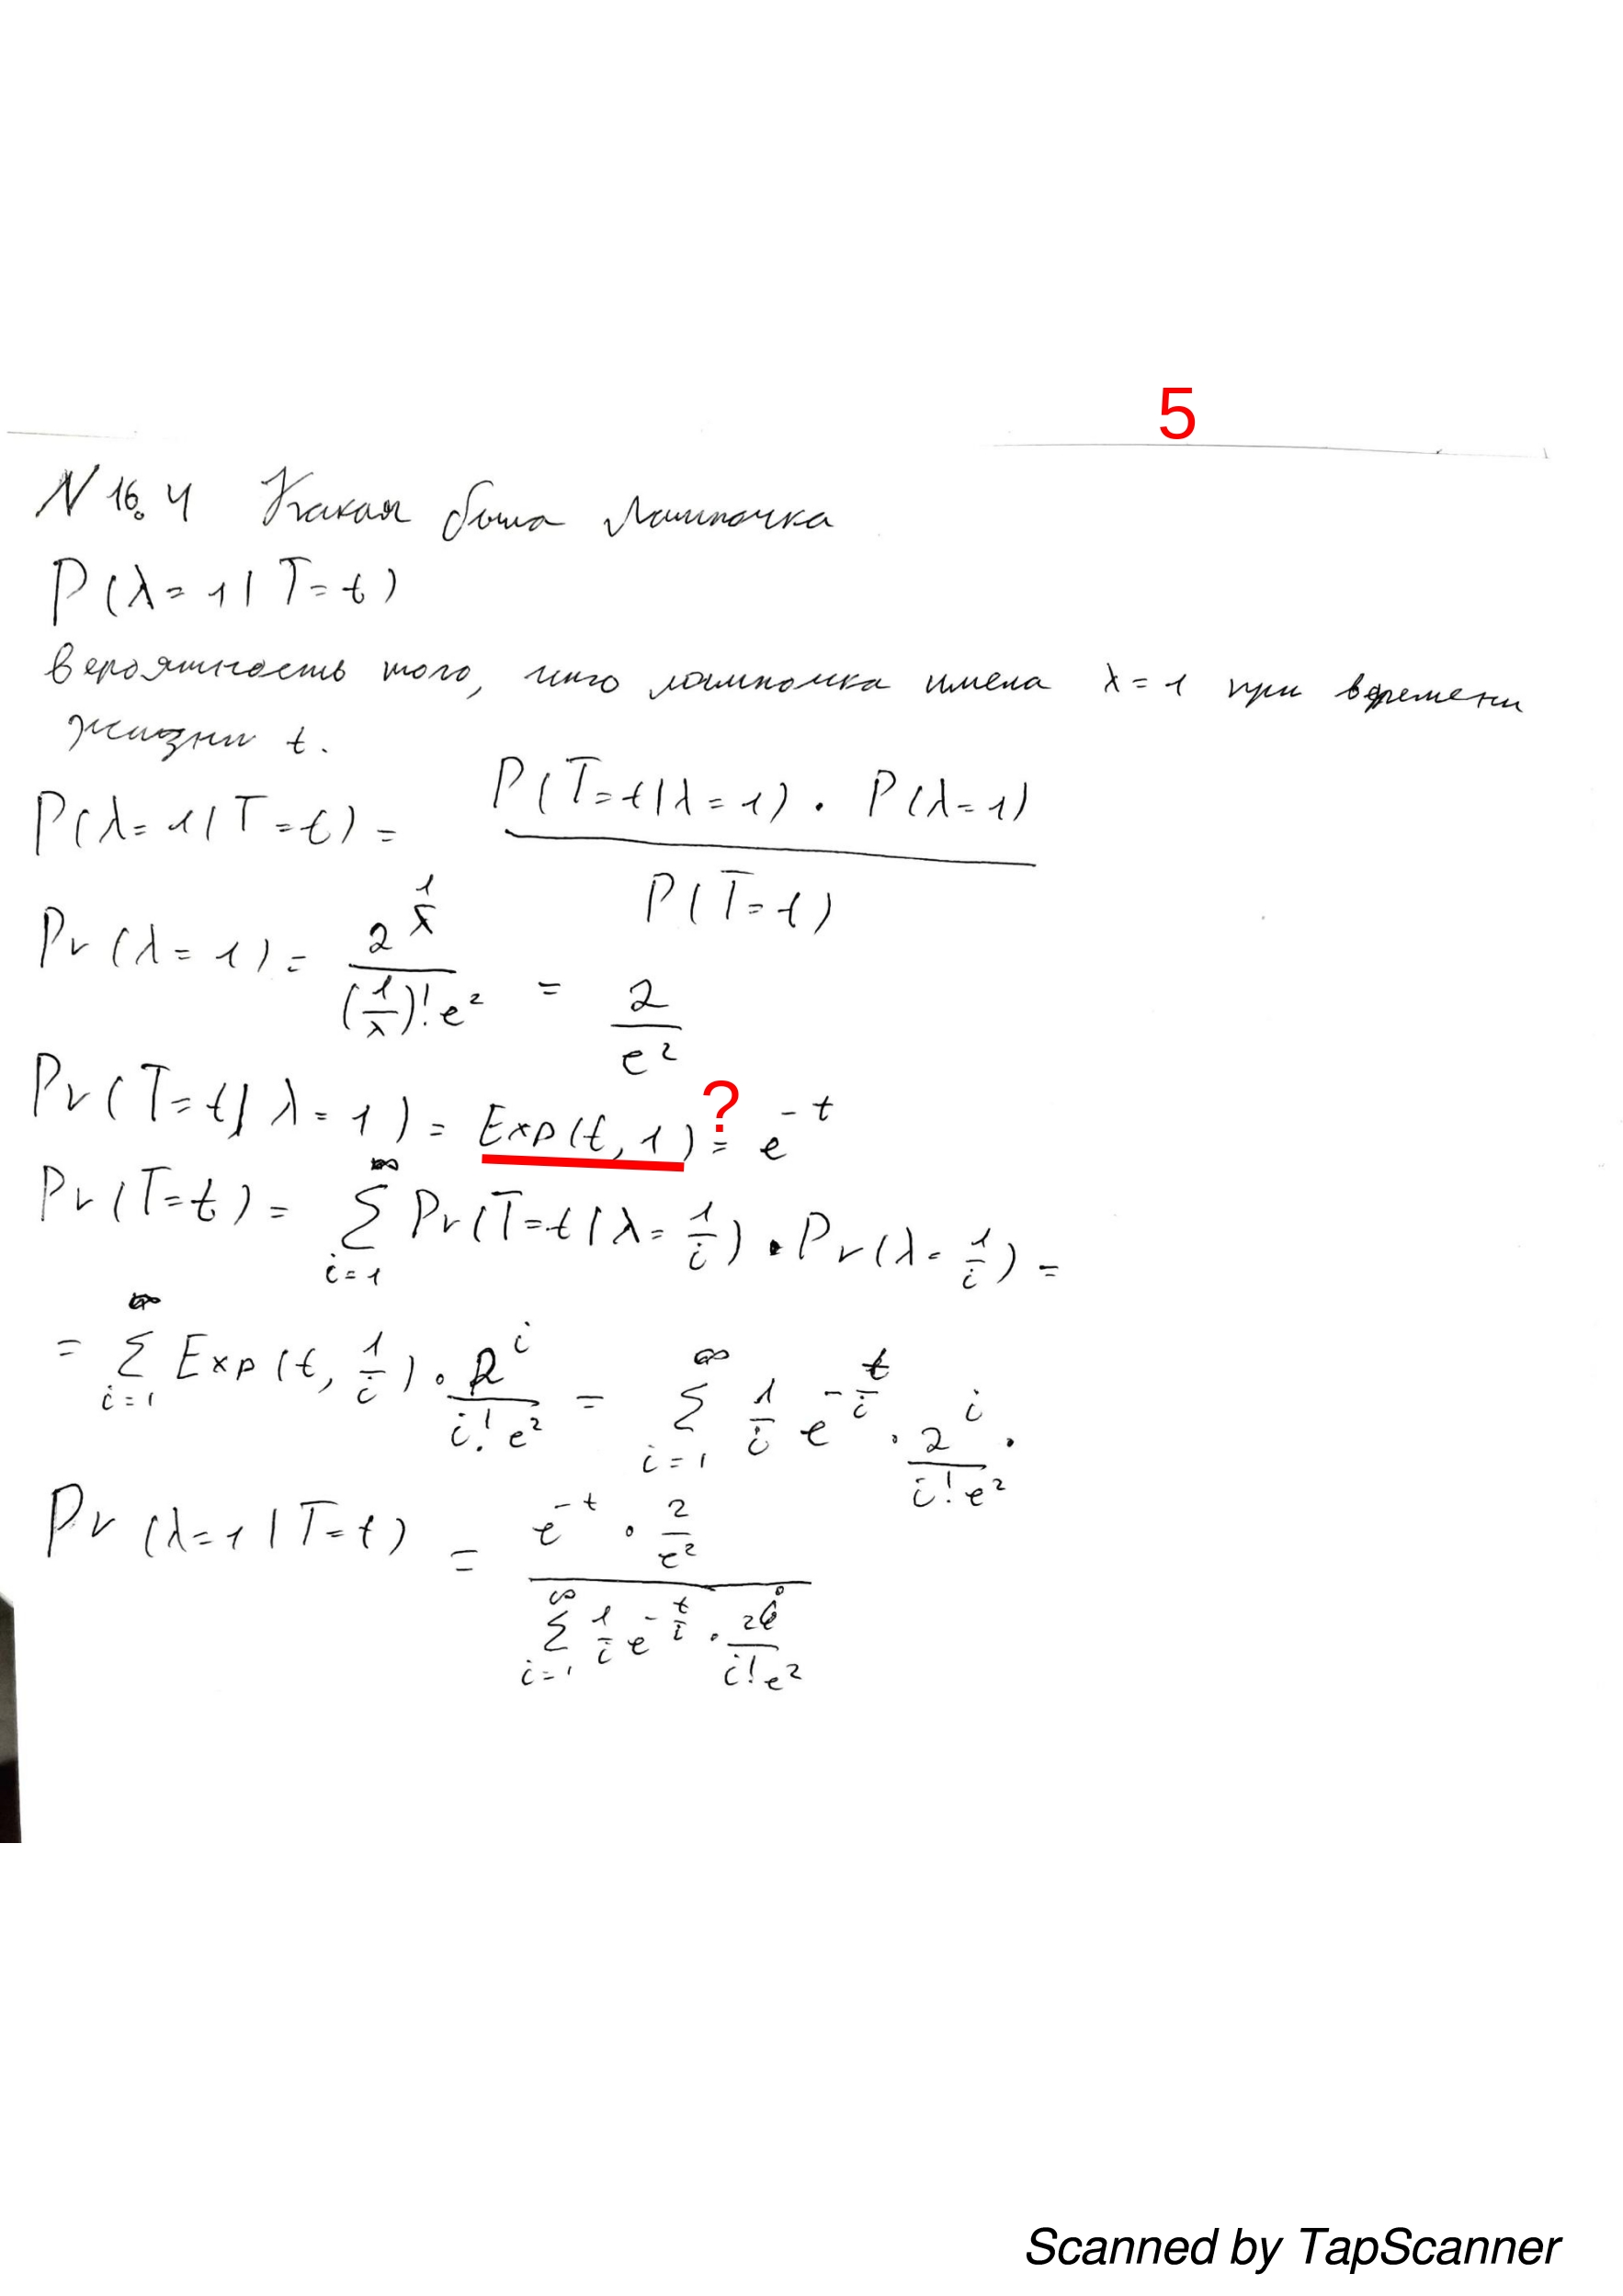 5
N 16.4 Какая была лампочка
P(λ=1 | T=t)
вероятность того, что лампочка имела λ=1 при времени
жизни t.
P(λ=1 | T=t) = P(T=t | λ=1) · P(λ=1) / P(T=t)
Pr(λ=1) = 2^(1/λ) / ((1/λ)! e²) = 2/e²
Pr(T=t | λ=1) = Exp(t, 1) = e^(-t)
?
Pr(T=t) = ∞ Σ i=1 Pr(T=t | λ=1/i) · Pr(λ=1/i) =
= ∞ Σ i=1 Exp(t, 1/i) · 2^i / (i! e²) = ∞ Σ i=1 1/i e^(-t/i) · 2^i / (i! e²) .
Pr(λ=1 | T=t) = e^(-t) · 2/e² / ∞ Σ i=1 1/i e^(-t/i) · 2^i / (i! e²)
Scanned by TapScanner